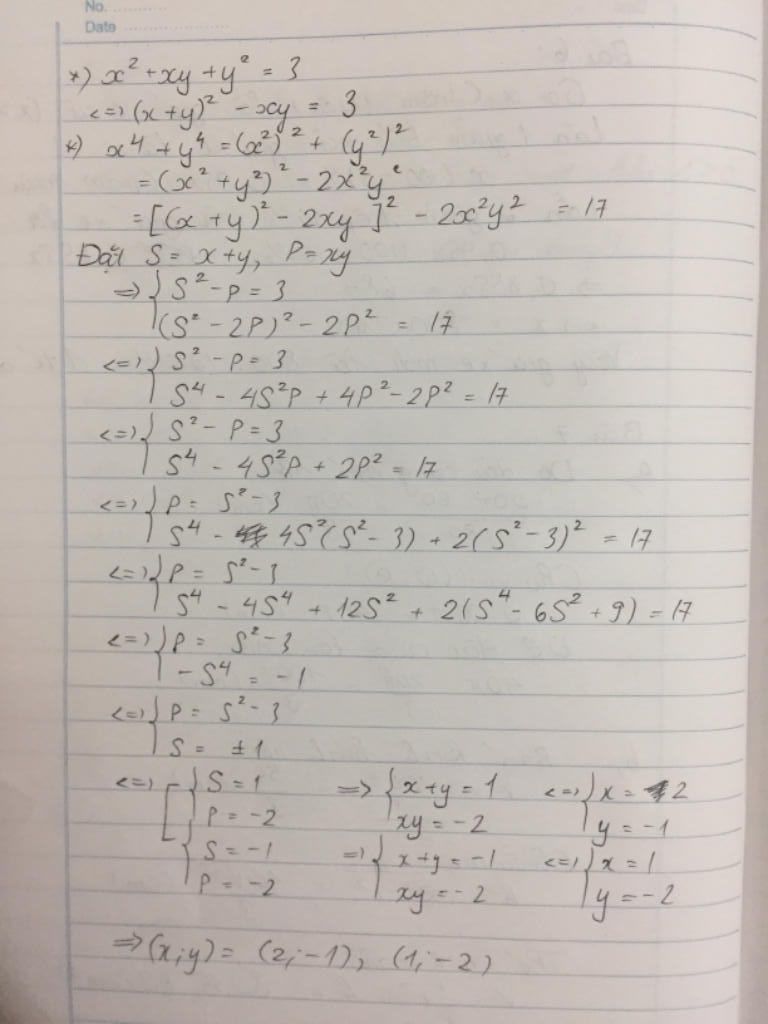 No. ............
Date ..................
*) x² + xy + y² = 3
<=> (x+y)² - xy = 3
*) x⁴ + y⁴ = (x²)² + (y²)²
= (x² + y²)² - 2x²y²
= [(x+y)² - 2xy]² - 2x²y² = 17
Đặt S = x+y, P = xy
=> { S² - P = 3
(S² - 2P)² - 2P² = 17
<=> { S² - P = 3
S⁴ - 4S²P + 4P² - 2P² = 17
<=> { S² - P = 3
S⁴ - 4S²P + 2P² = 17
<=> { P = S² - 3
S⁴ - 4S²(S² - 3) + 2(S² - 3)² = 17
<=> { P = S² - 3
S⁴ - 4S⁴ + 12S² + 2(S⁴ - 6S² + 9) = 17
<=> { P = S² - 3
-S⁴ = -1
<=> { P = S² - 3
S = ±1
<=> [ { S = 1 => { x+y = 1 <=> { x = 2
P = -2 xy = -2 y = -1
{ S = -1 => { x+y = -1 <=> { x = 1
P = -2 xy = -2 y = -2
=> (x;y) = (2;-1), (1;-2)